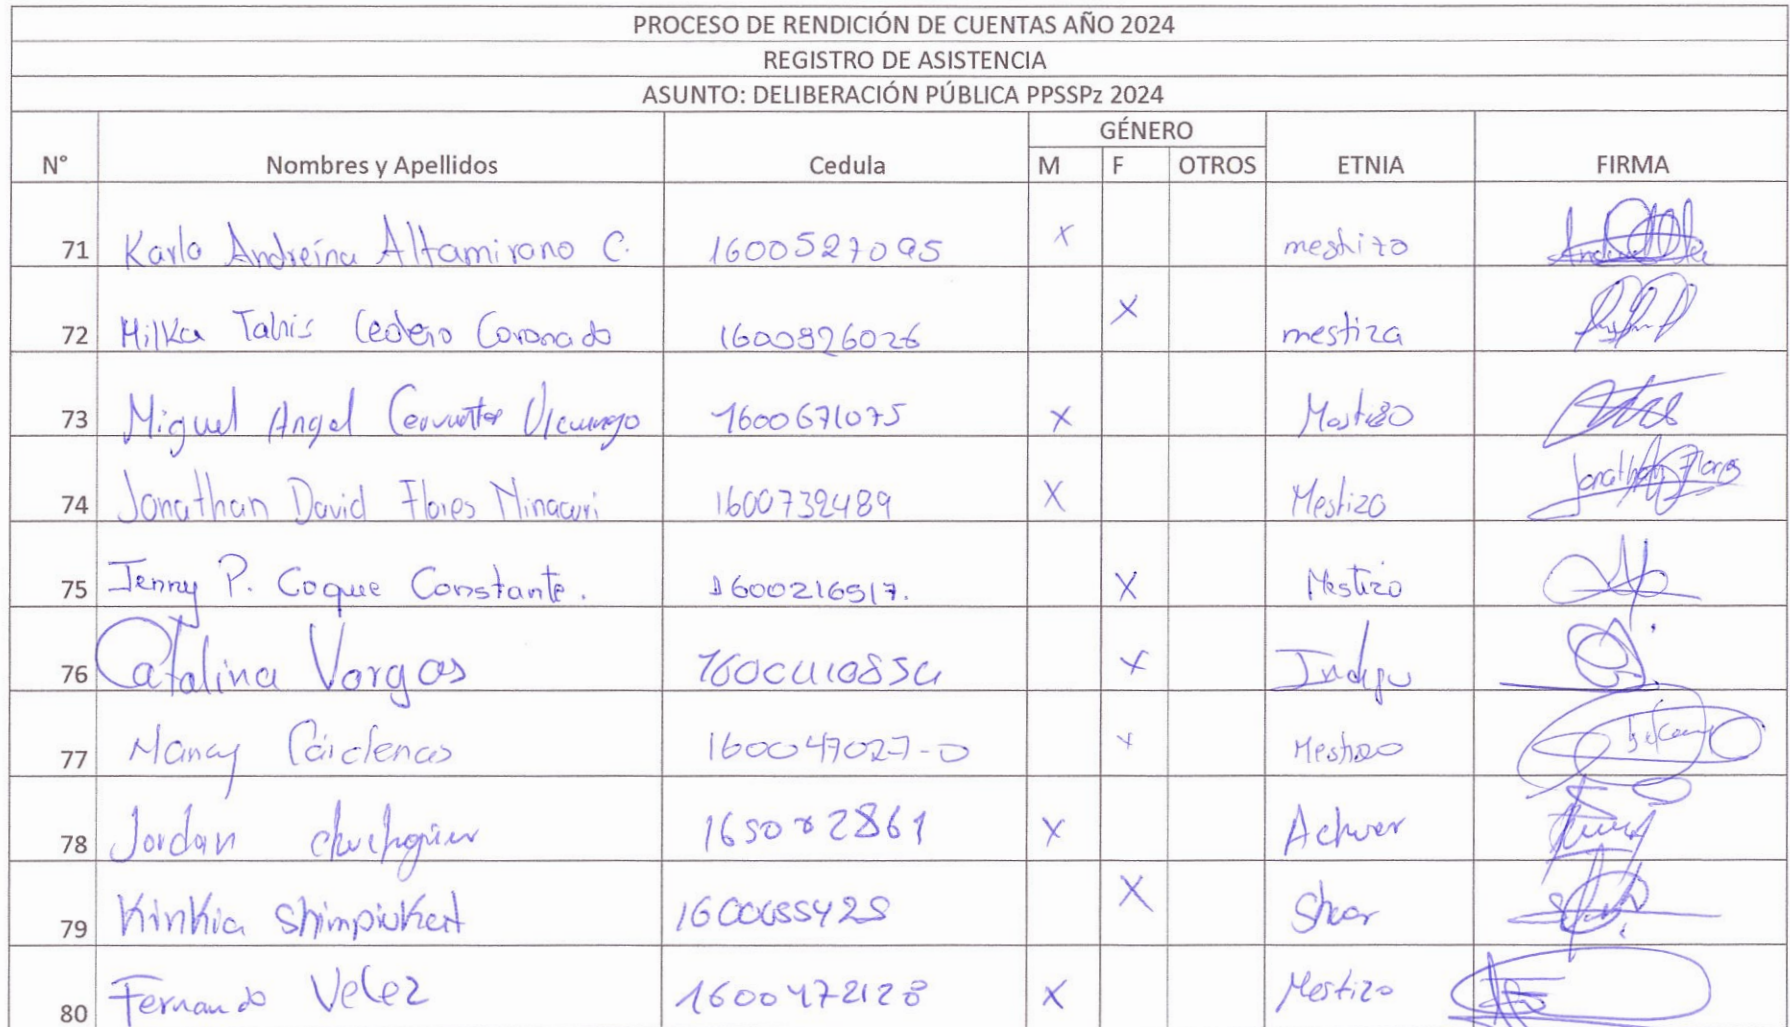 PROCESO DE RENDICIÓN DE CUENTAS AÑO 2024
REGISTRO DE ASISTENCIA
ASUNTO: DELIBERACIÓN PÚBLICA PPSSPz 2024
GÉNERO
N° Nombres y Apellidos Cedula M F OTROS ETNIA FIRMA
71 Karla Andreína Altamirano C. 1600527095 X mestizo
72 Milka Cedeño Coronado 1600826026 X mestiza
73 Miguel Angel 1600671075 X Mestizo
74 Jonathan David Flores Minacuri 1600732489 X Mestizo Jonathan Flores
75 Jenny P. Coque Constante. 1600216517. X Mestizo
76 Catalina Vargas X
77 Nancy Cárdenas 160047027-0 X Mestizo
78 Jordan X Achuar
79 Kinkia X Shuar
80 Fernando Velez 1600472128 X Mestizo